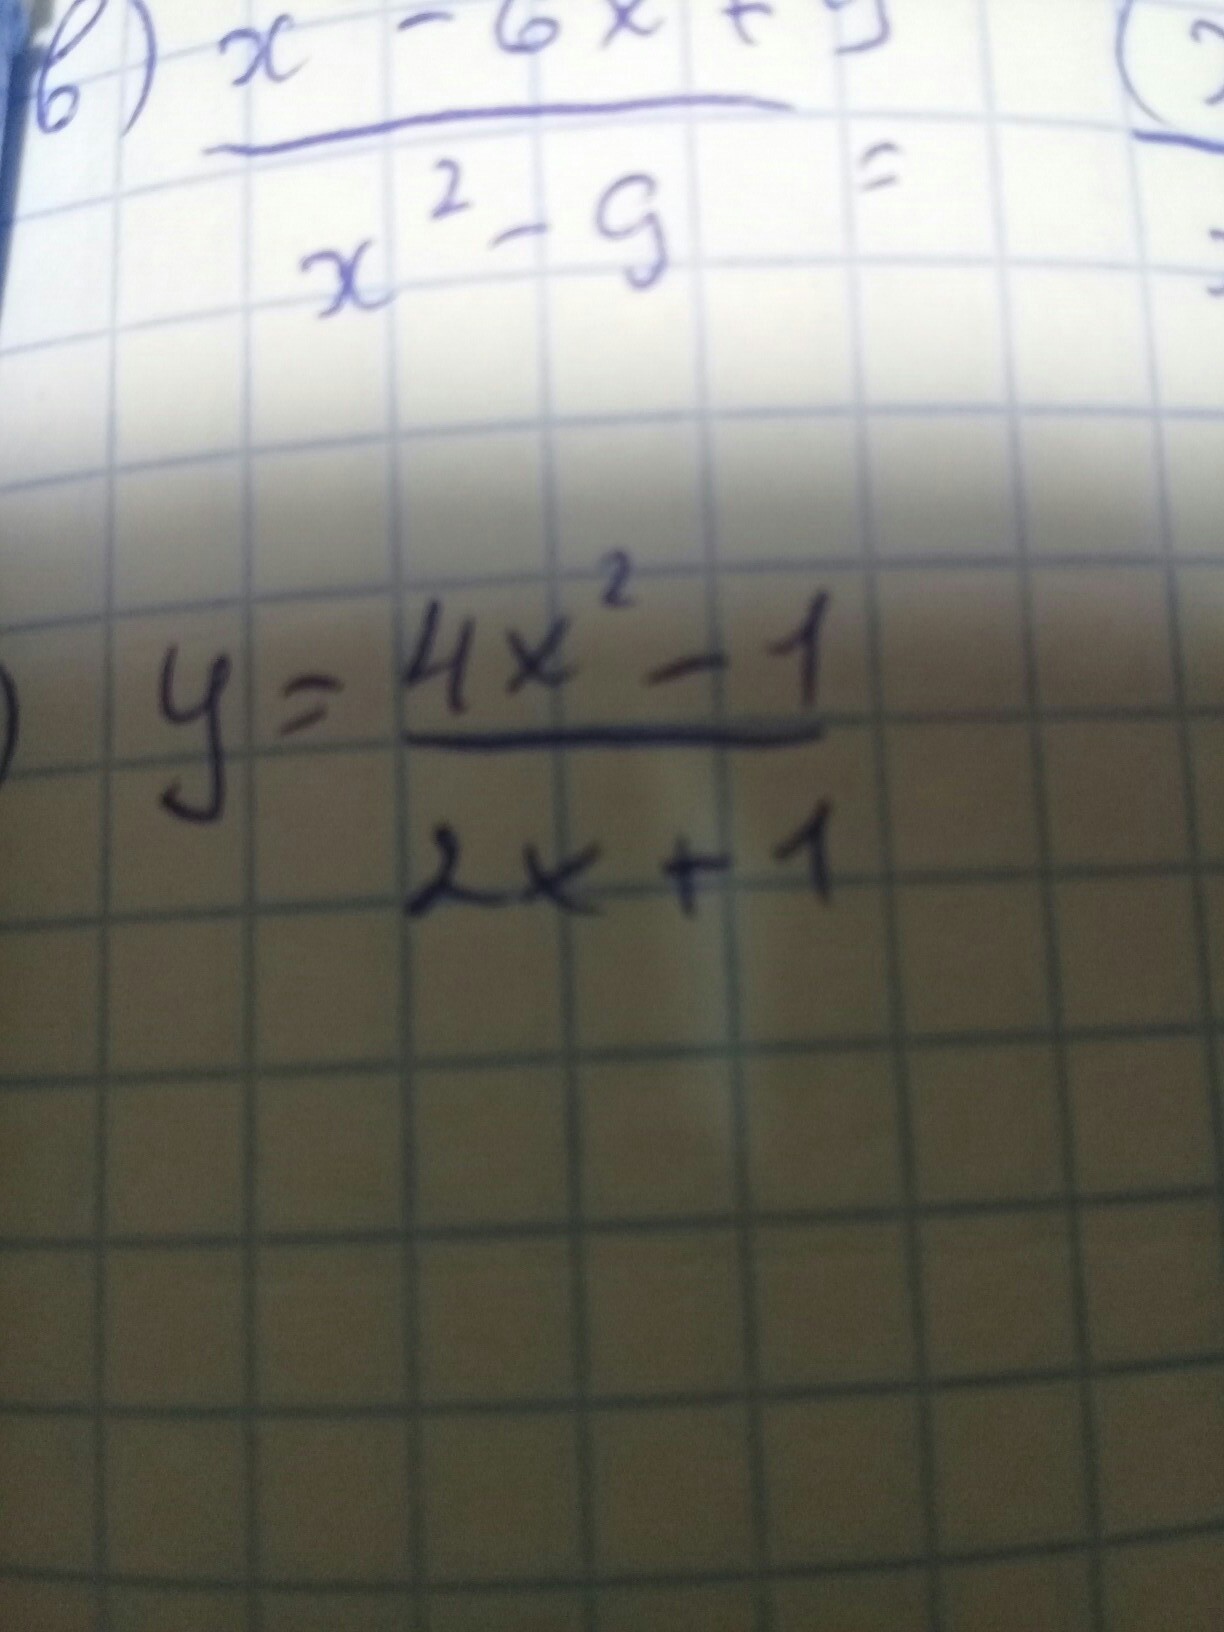 в) x - 6x +
x² - 9 =
) y = 4x² - 1
2x + 1